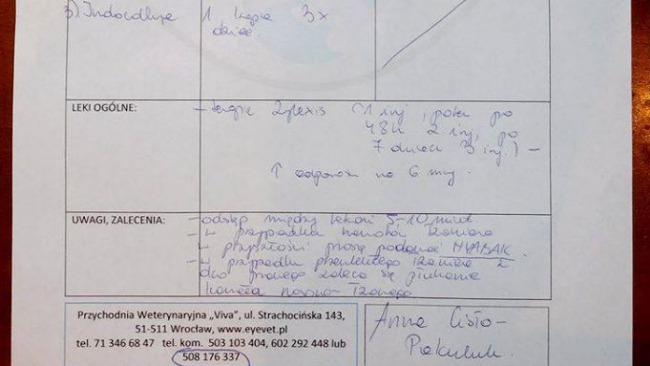 3) Indocollyre 1 kropla 3x
dziennie
LEKI OGÓLNE:
- Zylexis (1 inj, potem po
48h 2 inj, po
7 dniach 3 inj.) -
↑ odporność na 6 mcy.
UWAGI, ZALECENIA:
- odstęp między lekami 5-10 minut
- w przypadku nawrotu łzawienia
w przyszłości proszę podawać NYABAK
- w przypadku przewlekłego łzawienia z
oka prawego zaleca się płukanie
kanału nosowo-łzowego
Przychodnia Weterynaryjna „Viva”, ul. Strachocińska 143,
51-511 Wrocław, www.eyevet.pl
tel. 71 346 68 47 tel. kom. 503 103 404, 602 292 448 lub
508 176 337
Anna Cisło-
Pakuluk